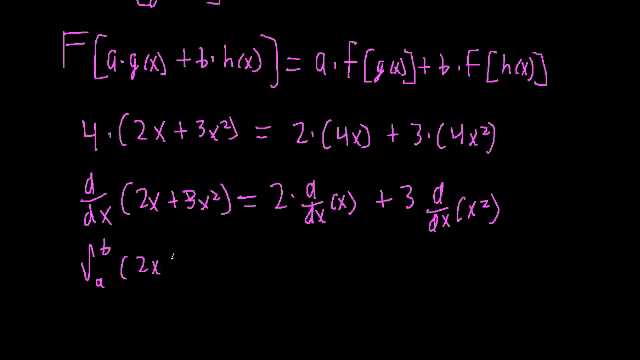 F[a·g(x) + b·h(x)] = a·F[g(x)] + b·F[h(x)]
4·(2x + 3x²) = 2·(4x) + 3·(4x²)
d/dx (2x + 3x²) = 2·d/dx (x) + 3 d/dx (x²)
∫ₐᵇ (2x